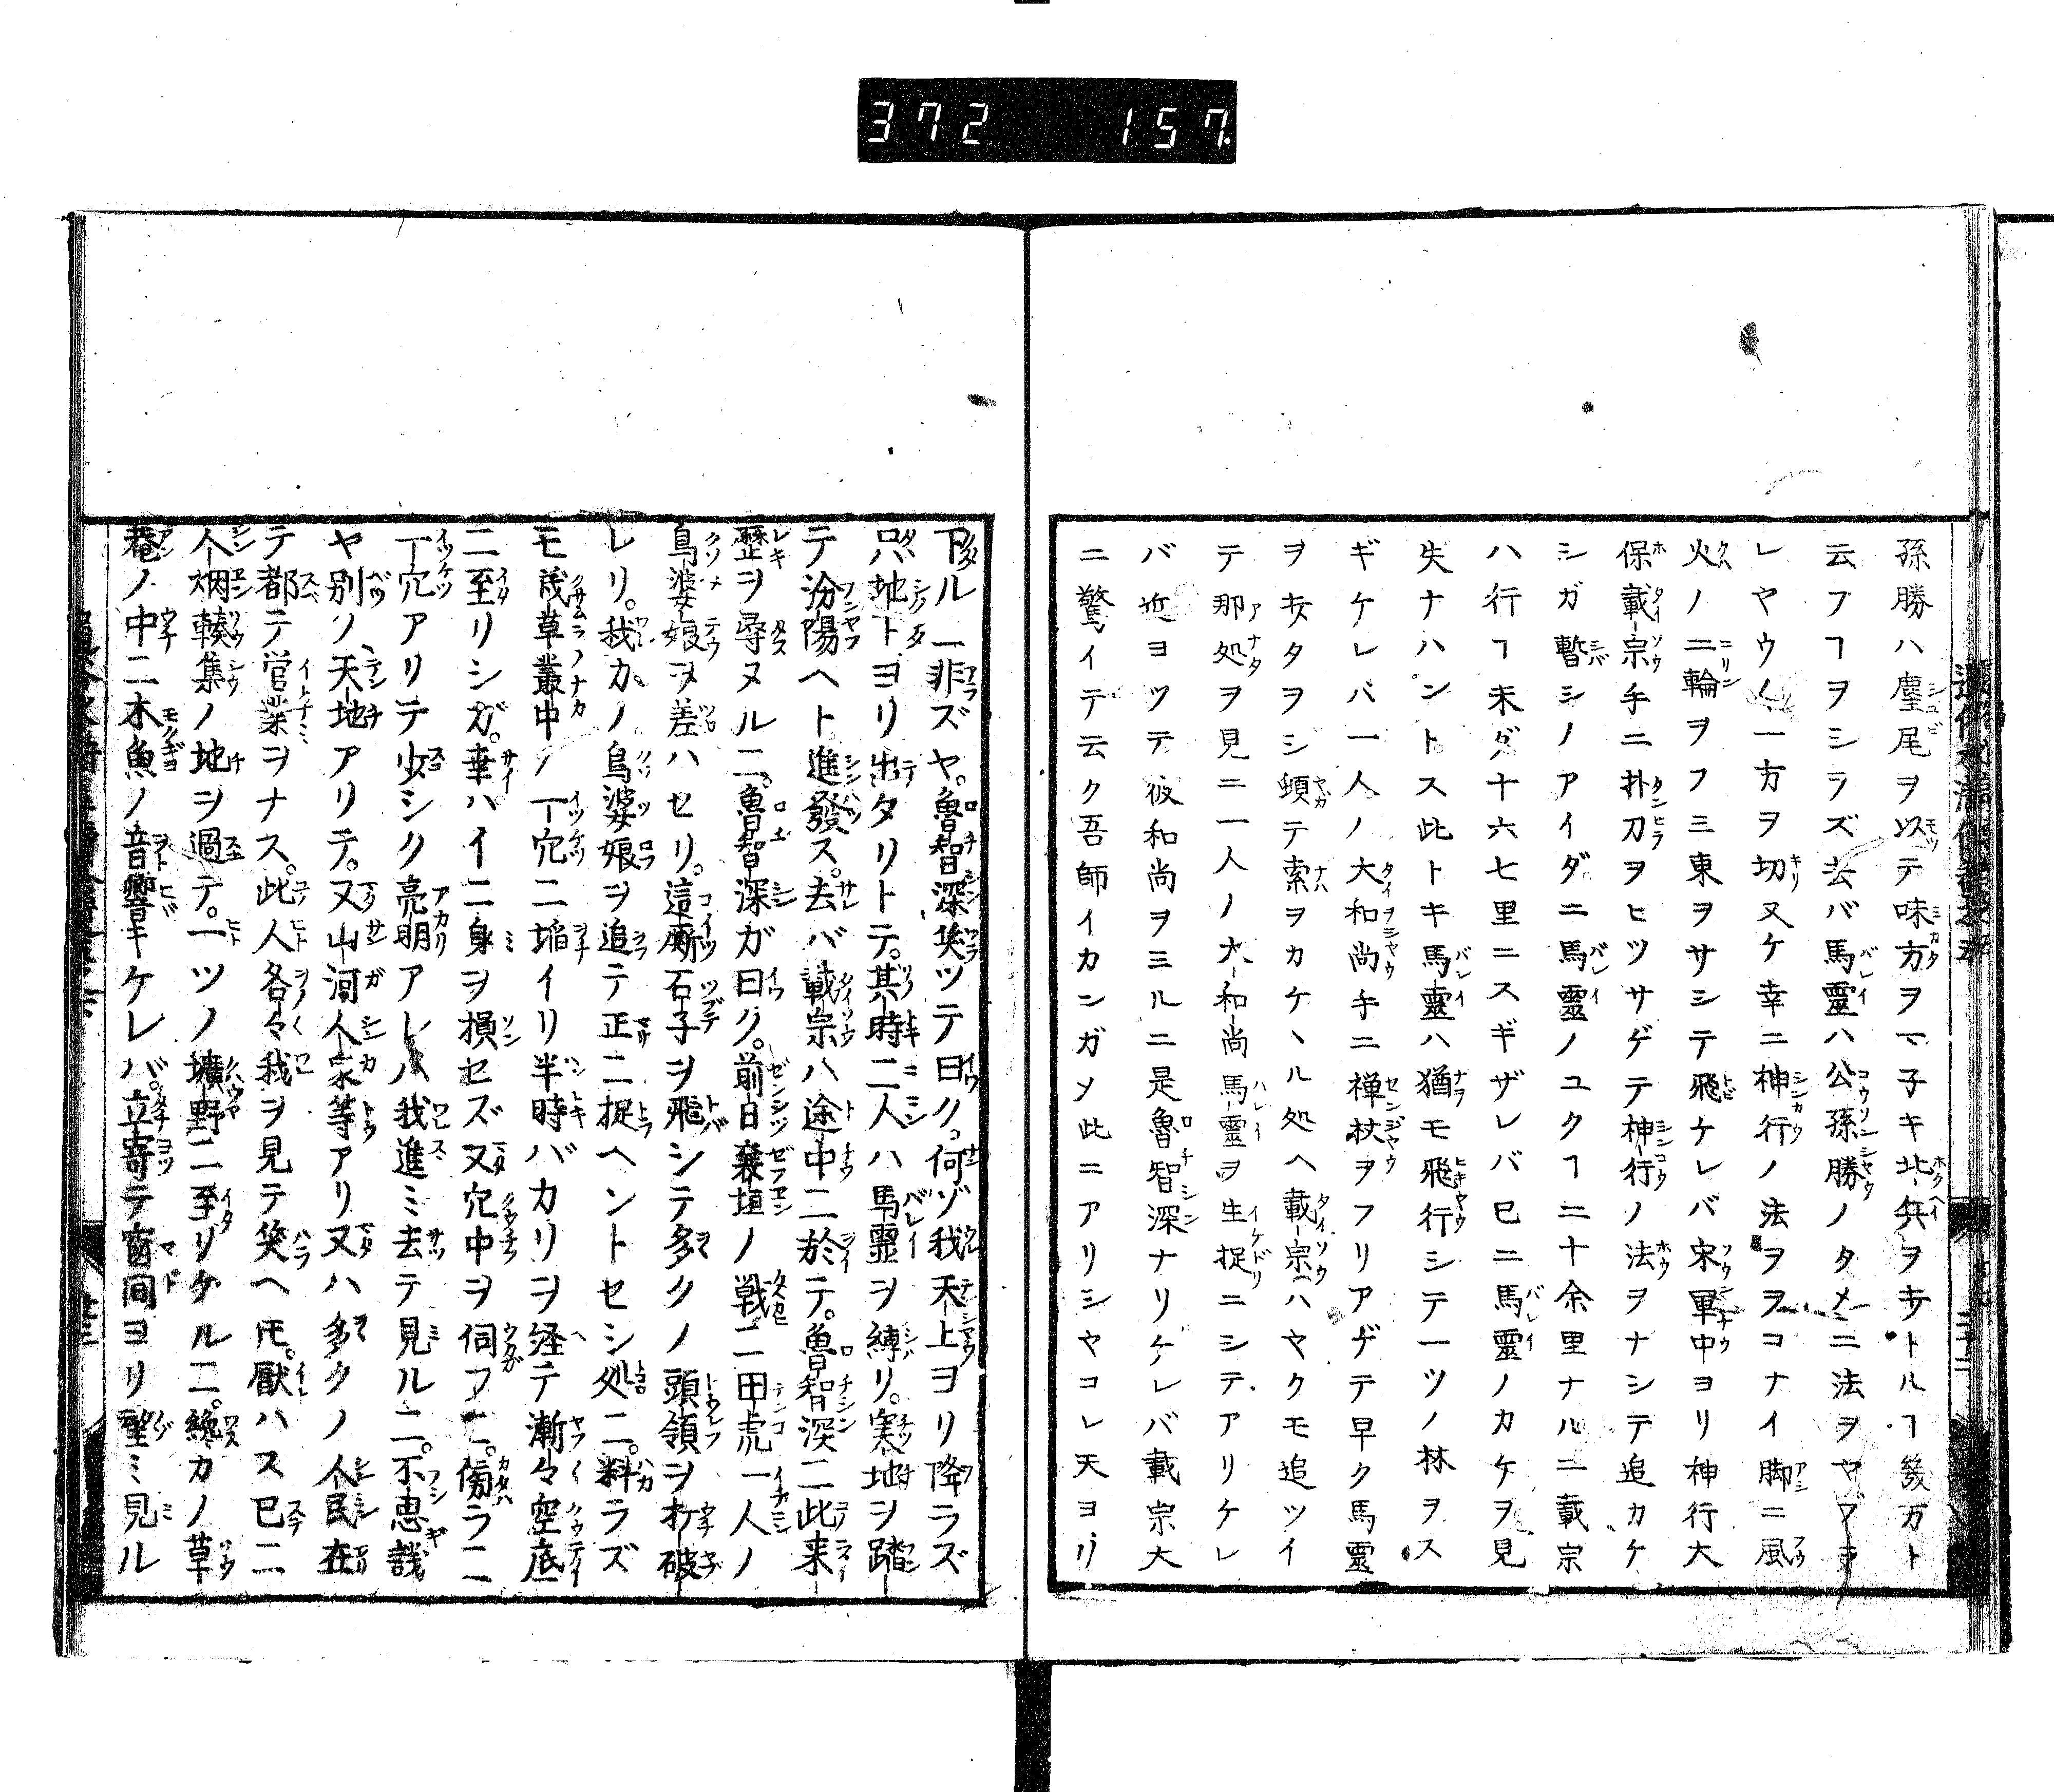 372 157
孫勝ハ麈尾ヲ以テ味方ヲマ子キ北兵ヲ打トルヿ幾万ト
云フヿヲシラズ去バ馬靈ハ公孫勝ノタメニ法ヲヤブラ
レヤウ〳〵一方ヲ切又ケ幸ニ神行ノ法ヲヲコナイ脚ニ風
火ノ二輪ヲフミ東ヲサシテ飛ケレバ宋軍中ヨリ神行大
保載宗手ニ朴刀ヲヒツサゲテ神行ノ法ヲナシテ追カケ
シガ暫シノアイダニ馬靈ノユクヿ二十余里ナルニ載宗
ハ行ヿ未ダ十六七里ニスギザレバ已ニ馬靈ノカケヲ見
失ナハントス此トキ馬靈ハ猶モ飛行シテ一ツノ林ヲス
ギケレバ一人ノ大和尚手ニ禅杖ヲフリアゲテ早ク馬靈
ヲ打タヲシ頓テ索ヲカケヽル処ヘ載宗ハヤクモ追ツイ
テ那処ヲ見ニ一人ノ大和尚馬靈ヲ生捉ニシテアリケレ
バ近ヨツテ彼和尚ヲミルニ是魯智深ナリケレバ載宗大
ニ驚イテ云ク吾師イカンガメ此ニアリシヤコレ天ヨリ
下ルニ非ズヤ。魯智深笑ツテ曰ク。何ゾ我天上ヨリ降ラズ
只地トヨリ出タリトテ。其時二人ハ馬靈ヲ縛リ。実地ヲ踏
テ汾陽ヘト進發ス。去バ載宗ハ途中ニ於テ。魯智深ニ此来
歴ヲ尋ヌルニ。魯智深ガ曰ク。前日襄垣ノ戦ニ田虎一人ノ
鳥婆娘ヲ差ハセリ。這廝石子ヲ飛シテ多クノ頭領ヲ打破
レリ。我カノ鳥婆娘ヲ追テ正ニ捉ヘントセシ処ニ。料ラズ
モ茂草叢中ノ一穴ニ堀イリ半時バカリヲ経テ漸々空底
ニ至リシガ。幸ハイニ身ヲ損セズ又穴中ヲ伺フニ。傷ラニ
一穴アリテ少シク亮明アレバ我進ミ去テ見ルニ。不思議
ヤ別ノ天地アリテ。又山河人家等アリ又ハ多クノ人民在
テ都テ営業ヲナス。此人各々我ヲ見テ笑ヘ𪜈。厭ハス已ニ
人烟輳集ノ地ヲ過テ。一ツノ壙野ニ至リケルニ。纔カノ草
菴ノ中ニ木魚ノ音響キケレバ。立寄テ窗間ヨリ望ミ見ル